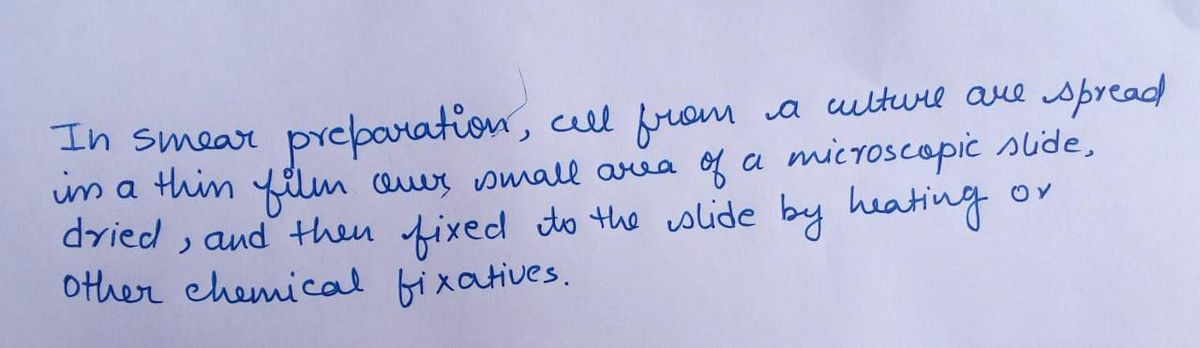 In smear preparation, cell from a culture are spread
in a thin film over small area of a microscopic slide,
dried, and then fixed to the slide by heating or
other chemical fixatives.